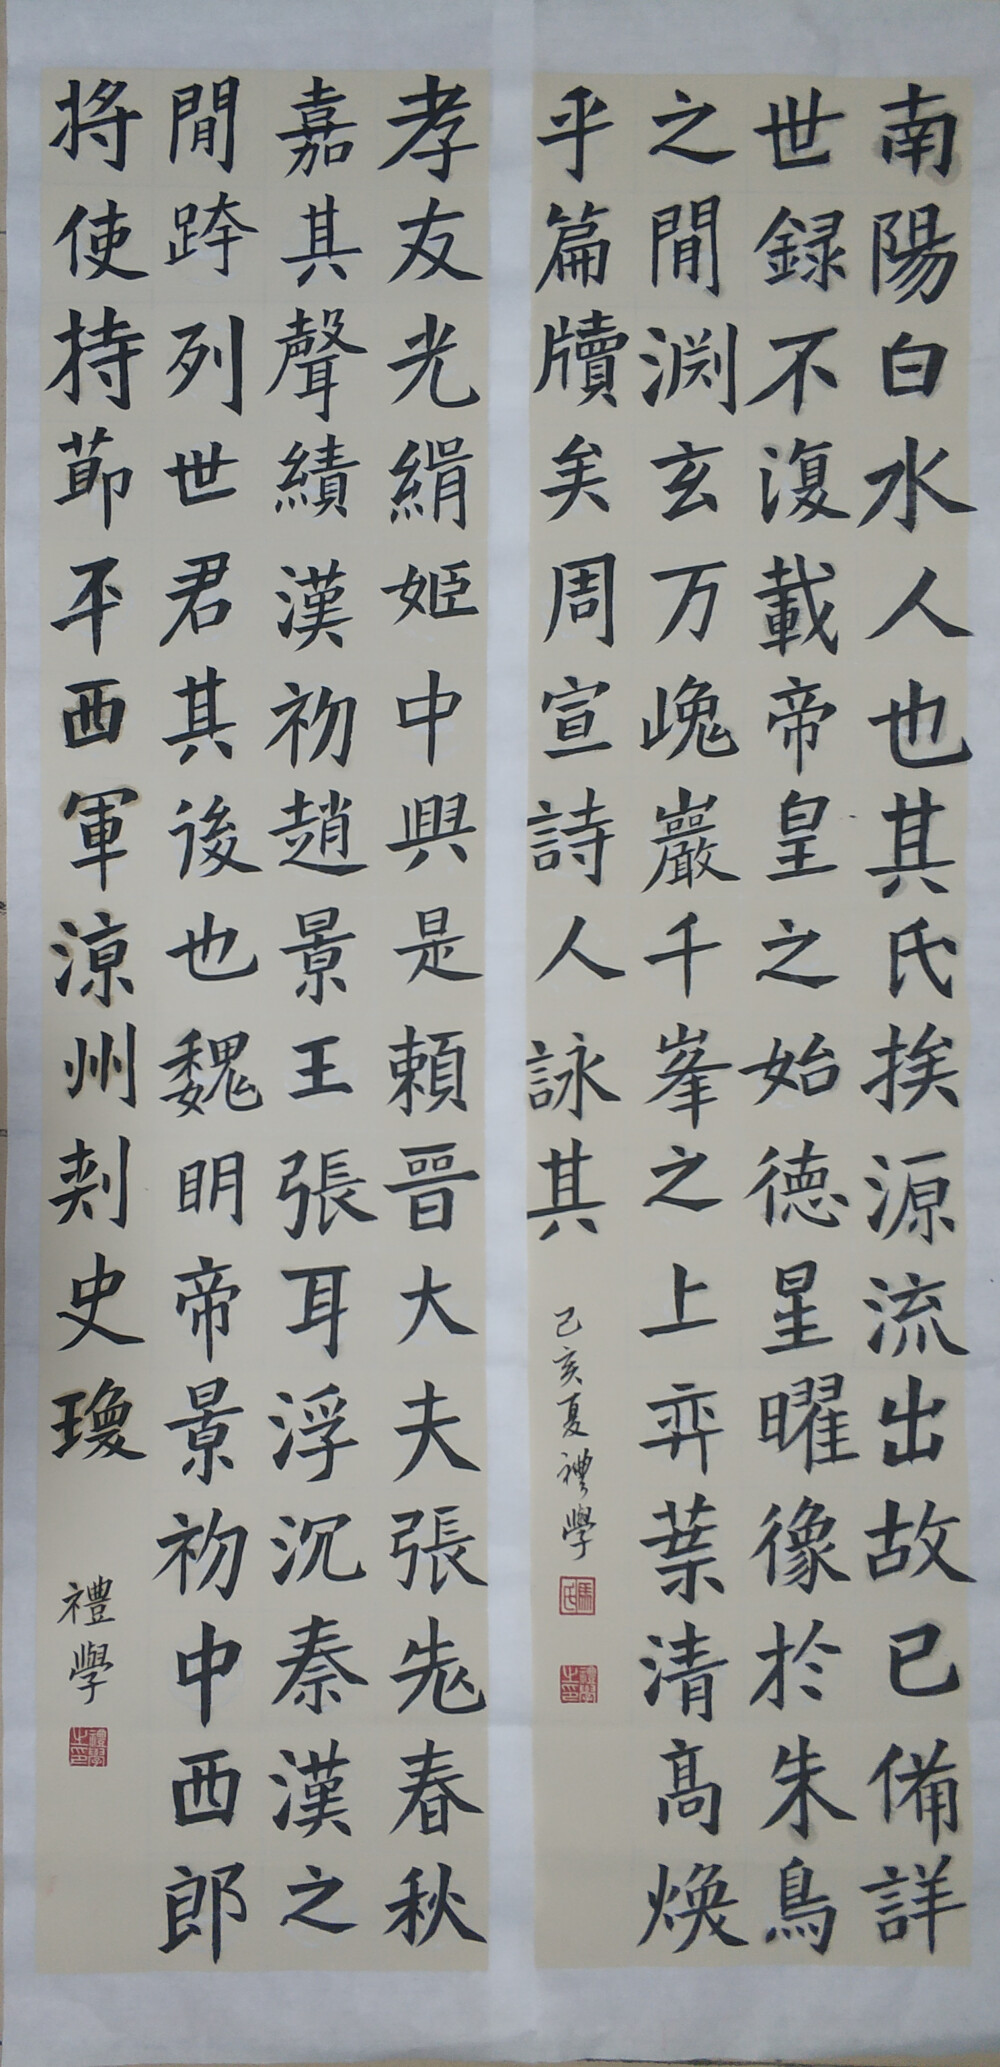 南陽白水人也其氏挨源流出故已備詳
世録不復載帝皇之始德星曜像於朱鳥
之閒渊玄万嵬巖千峯之上弈葉清高焕
乎篇牘矣周宣詩人詠其
己亥夏禮學
馬氏
禮學之印
孝友光緝姬中興是賴晉大夫張老春秋
嘉其聲績漢初趙景王張耳浮沉秦漢之
閒跨列世君其後也魏明帝景初中西郎
將使持節平西軍涼州刾史瓊
禮學
禮學之印